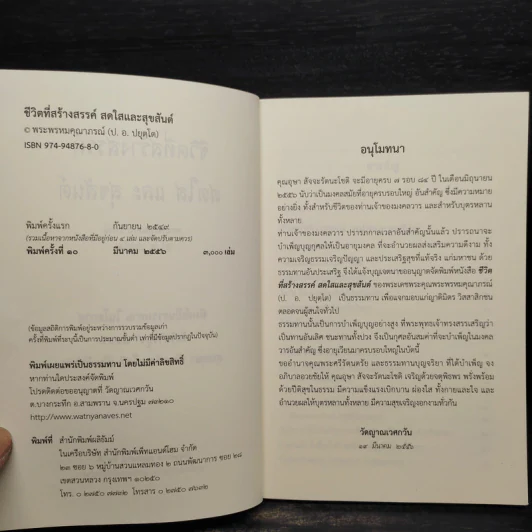 ชีวิตที่สร้างสรรค์ สดใสและสุขสันต์
© พระพรหมคุณาภรณ์ (ป. อ. ปยุตฺโต)
ISBN 974-94876-8-0
พิมพ์ครั้งแรก กันยายน ๒๕๔๙
(รวมเนื้อหาจากหนังสือที่มีอยู่ก่อน ๔ เล่ม และจัดปรับตามควร)
พิมพ์ครั้งที่ ๑๐ มีนาคม ๒๕๕๖ ๓,๐๐๐ เล่ม
(ข้อมูลสถิติการพิมพ์อยู่ระหว่างการรวบรวมข้อมูลเก่า
ครั้งที่พิมพ์ที่ระบุนี้เป็นการประมาณขั้นต่ำ เท่าที่มีข้อมูลปรากฏในปัจจุบัน)
พิมพ์เผยแพร่เป็นธรรมทาน โดยไม่มีค่าลิขสิทธิ์
หากท่านใดประสงค์จัดพิมพ์
โปรดติดต่อขออนุญาตที่ วัดญาณเวศกวัน
ต.บางกระทึก อ.สามพราน จ.นครปฐม ๗๓๒๑๐
http://www.watnyanaves.net
พิมพ์ที่ สำนักพิมพ์ผลิธัมม์
ในเครือบริษัท สำนักพิมพ์เพ็ทแอนด์โฮม จำกัด
๒๓ ซอย ๖ หมู่บ้านสวนแหลมทอง ๒ ถนนพัฒนาการ ซอย ๒๘
เขตสวนหลวง กรุงเทพฯ ๑๐๒๕๐
โทร. ๐ ๒๗๕๐ ๗๗๓๒ โทรสาร ๐ ๒๗๕๐ ๗๗๓๒
อนุโมทนา
คุณอุษา สัจจะรัตนะโชติ จะมีอายุครบ ๗ รอบ ๘๔ ปี ในเดือนมิถุนายน
๒๕๕๖ นับว่าเป็นมงคลสมัยที่อายุครบรอบใหญ่ อันสำคัญ ซึ่งมีความหมาย
อย่างยิ่ง ทั้งสำหรับชีวิตของท่านเจ้าของมงคลวาร และสำหรับบุตรหลาน
ทั้งหลาย
ท่านเจ้าของมงคลวาร ปรารภกาลเวลาอันสำคัญนั้นแล้ว ปรารถนาจะ
บำเพ็ญบุญกุศลให้เป็นอายุมงคล ที่จะอำนวยผลส่งเสริมความดีงาม ทั้ง
ความเจริญธรรมเจริญปัญญา และประเสริฐสุขที่แท้จริง แก่มหาชน ด้วย
ธรรมทานอันประเสริฐ จึงได้แจ้งบุญเจตนาขออนุญาตจัดพิมพ์หนังสือ ชีวิต
ที่สร้างสรรค์ สดใสและสุขสันต์ ของพระเดชพระคุณพระพรหมคุณาภรณ์
(ป. อ. ปยุตฺโต) เป็นธรรมทาน เพื่อแจกมอบแก่ญาติมิตร วิสสาสิกชน
ตลอดจนผู้สนใจทั่วไป
ธรรมทานนั้นเป็นการบำเพ็ญบุญอย่างสูง ที่พระพุทธเจ้าทรงสรรเสริญว่า
เป็นทานอันเลิศ ชนะทานทั้งปวง จึงเป็นกุศลอันสมค่าที่จะบำเพ็ญในมงคล
วารอันสำคัญ ซึ่งอายุเวียนมาครบรอบใหญ่ในบัดนี้
ขออำนาจคุณพระศรีรัตนตรัย และธรรมทานบุญจริยา ที่ได้บำเพ็ญ จง
อภิบาลอวยชัยให้ คุณอุษา สัจจะรัตนะโชติ เจริญด้วยจตุพิธพร พรั่งพร้อม
ด้วยปีติสุขในธรรม มีความแข็งแรงเบิกบาน ผ่องใส ทั้งกายและใจ และ
อำนวยผลให้บุตรหลานทั้งหลาย มีความสุขเจริญงอกงามทั่วกัน
วัดญาณเวศกวัน
๑๙ มีนาคม ๒๕๕๖